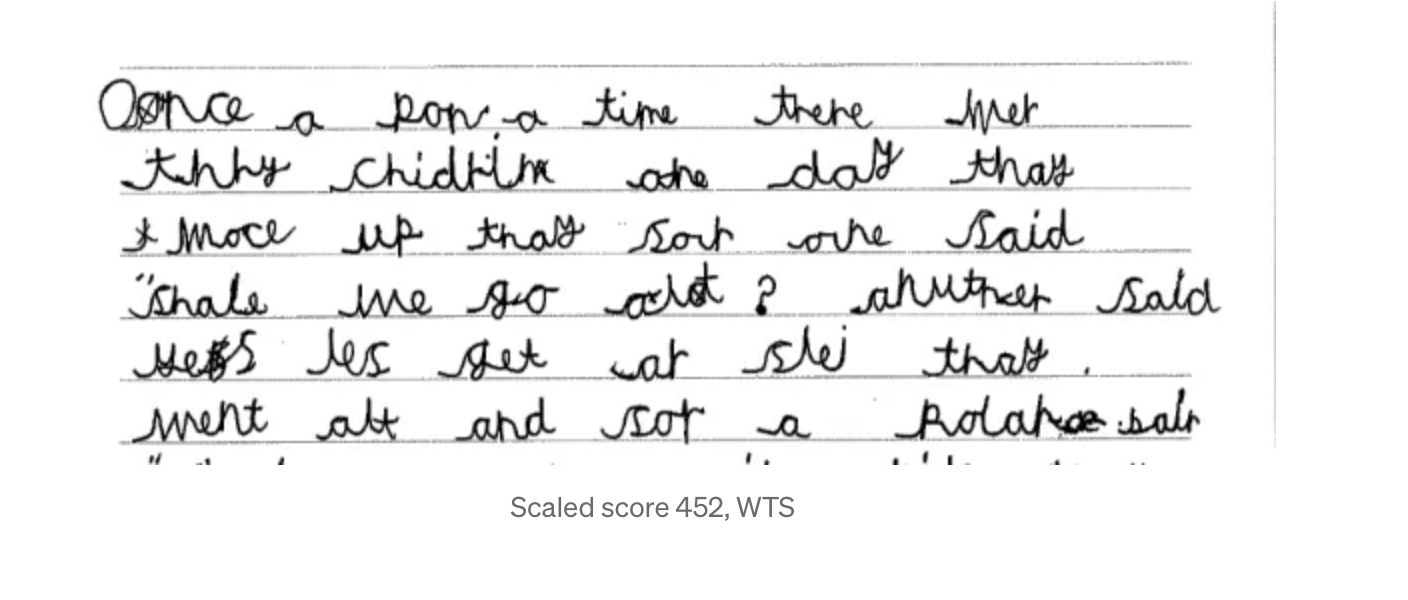 Oonce a pon a time there wer
thhy chidrin one day thay
woce up thay sor one said
"shale we go owt? anuther said
yess les get ar slej thay.
went awt and sor a Polar bair
Scaled score 452, WTS